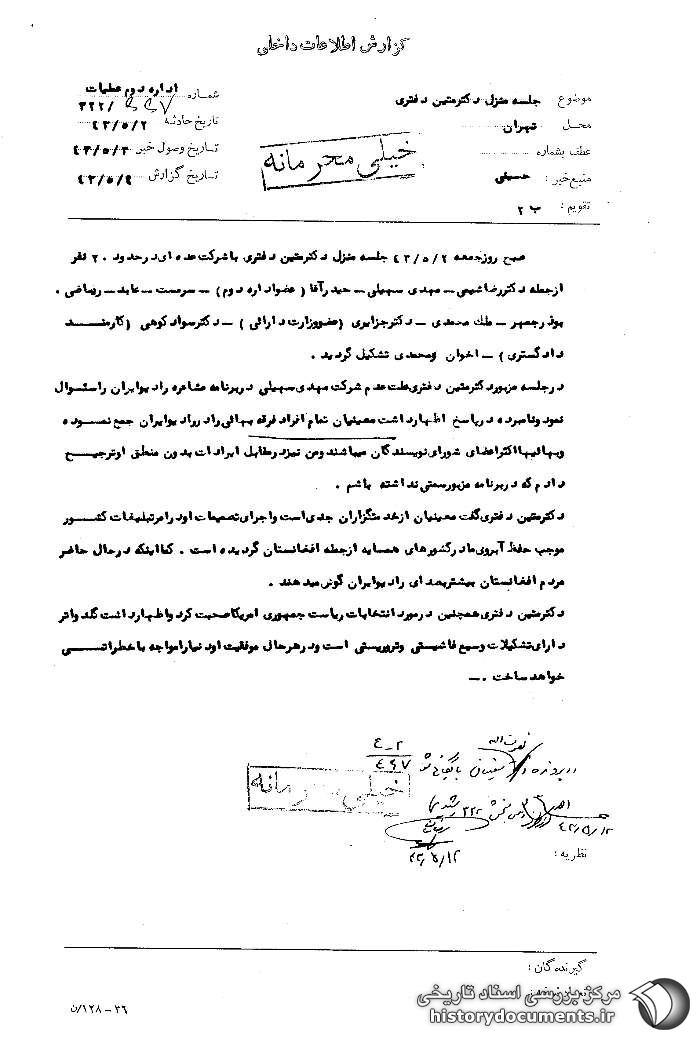 گزارش اطلاعات داخلی
موضوع : جلسه منزل دکترمتین دفتری
محل تهران
عطف بشماره
منبع خبر : حسینی
تقویم : ب ۲
اداره دوم عملیات
شماره ۳۲۲/
تاریخ حادثه ۴۳/۵/۲
تاریخ وصول خبر ۴۳/۵/۳
تاریخ گزارش ۴۳/۵/۹
خیلی محرمانه
صبح روزجمعه ۴۳/۵/۲ جلسه منزل دکترمتین دفتری باشرکت عده ای درحدود ۲۰ نفر
ازجمله دکتررضاشیمی – مهدی سهیلی – حیدرآقا ( عضواداره دوم ) – سرمست – عابد – ریاضی .
بوذرجمهر – ملک محمدی – دکترجزایری (عضووزارت دارائی ) – دکترسوادکوهی (کارمنـــد
دادگستری ) – اخوان ومحمدی تشکیل گردید .
درجلسه مزبوردکترمتین دفتری علت عدم شرکت مهدی سهیلی دربرنامه مشاعره رادیوایران راسئوال
نمودونامبرده درپاسخ اظهارداشت معینیان تمام افراد فرقه بهائی رادررادیوایران جمع نمـــوده
وبهائیهااکثراعضای شورای نویسندگان میباشند ومن نیزدرمقابل ایرادات بدون منطق اوترجیـــح
دادم که دربرنامه مزبورسمتی نداشته باشم .
دکترمتین دفتری گفت معینیان ازخدمتگزاران جدی است واجرای تصمیمات اودرامرتبلیغات کشـــور
موجب حفظ آبروی مادرکشورهای همسایه ازجمله افغانستان گردیده است . کمااینکه درحال حاضر
مردم افغانستان بیشتربصدای رادیوایران گوش میدهند .
دکترمتین دفتری همچنین درمورد انتخابات ریاست جمهوری امریکاصحبت کرد واظهارداشت گلد واتر
دارای تشکیلات وسیع فاشیستی وتروریستی است ودرهرحال موفقیت اودنیارامواجه باخطراتـــی
خواهد ساخت . –
۴-۲
۴۶۷
در پرونده معینیان بایگانی شود
خیلی محرمانه
بخش ۳۲۲
۴۳/۵/۱۲
۴۳/۵/۱۲
نظریه :
گیرندگان :
۳۶ – ۱۲۸/ن
مرکز بررسی اسناد تاریخی
historydocuments.ir